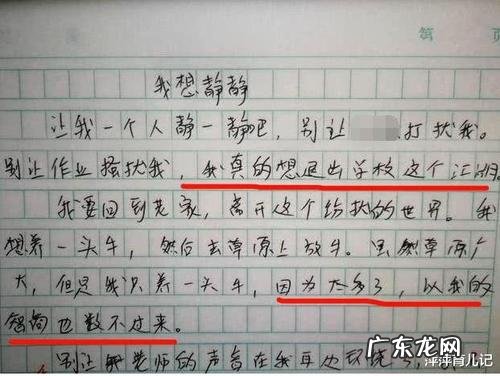 第 页
我想静静
让我一个人静一静吧，别让 打扰我。
别让作业骚扰我，我真的想退出学校这个江湖。
我要回到老家，离开这个纷扰的世界。我
想养一头牛，然后去草原上放牛。虽然草原广
大，但是我只养一头牛，因为太多了，以我的
智商也数不过来。
别让 老师的声音在我耳边环绕
广东龙网
萍萍育儿记